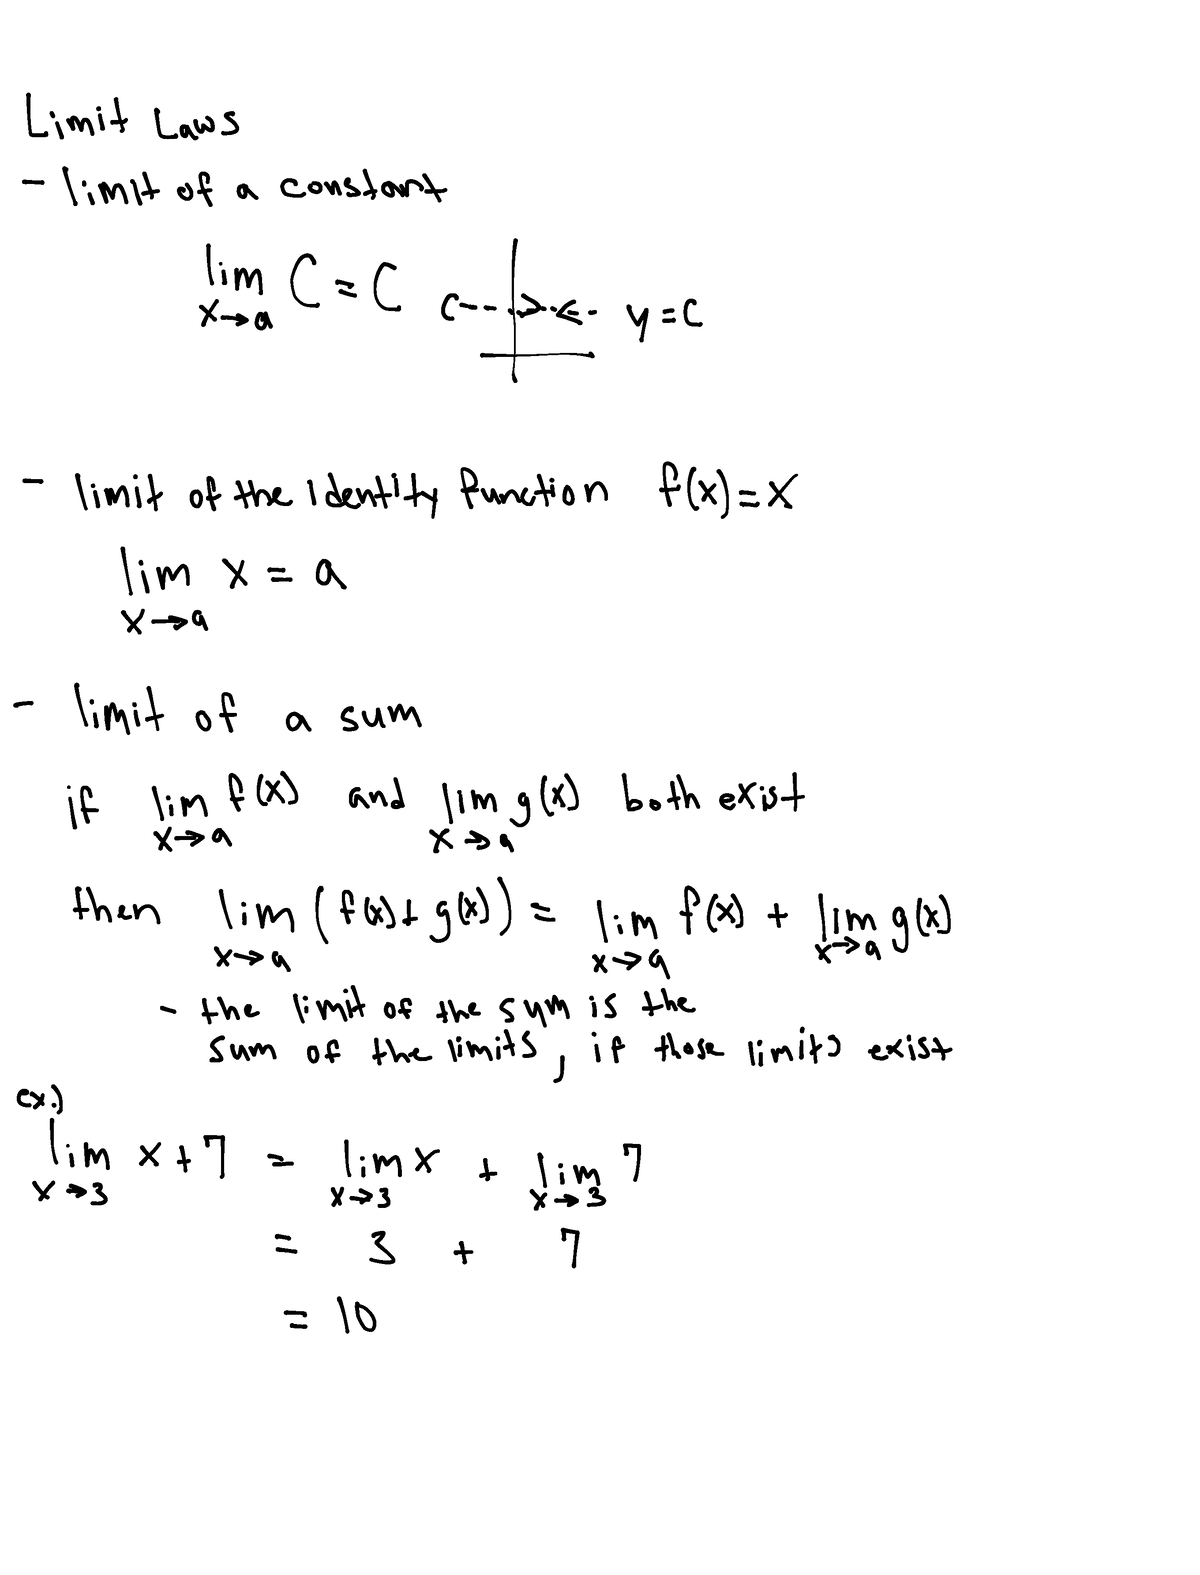 Limit Laws
- limit of a constant
lim C = C C y = C
x→a
- limit of the identity function f(x) = x
lim x = a
x→a
- limit of a sum
if lim f(x) and lim g(x) both exist
x→a x→a
then lim (f(x) + g(x)) = lim f(x) + lim g(x)
x→a x→a x→a
- the limit of the sum is the
sum of the limits, if those limits exist
ex.)
lim x + 7 = lim x + lim 7
x→3 x→3 x→3
= 3 + 7
= 10